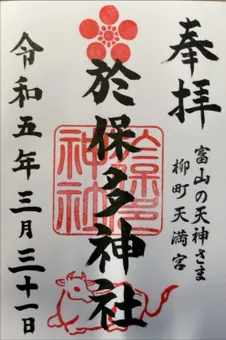 奉拝
富山の天神さま
柳町天満宮
於保多神社
令和五年三月三十一日